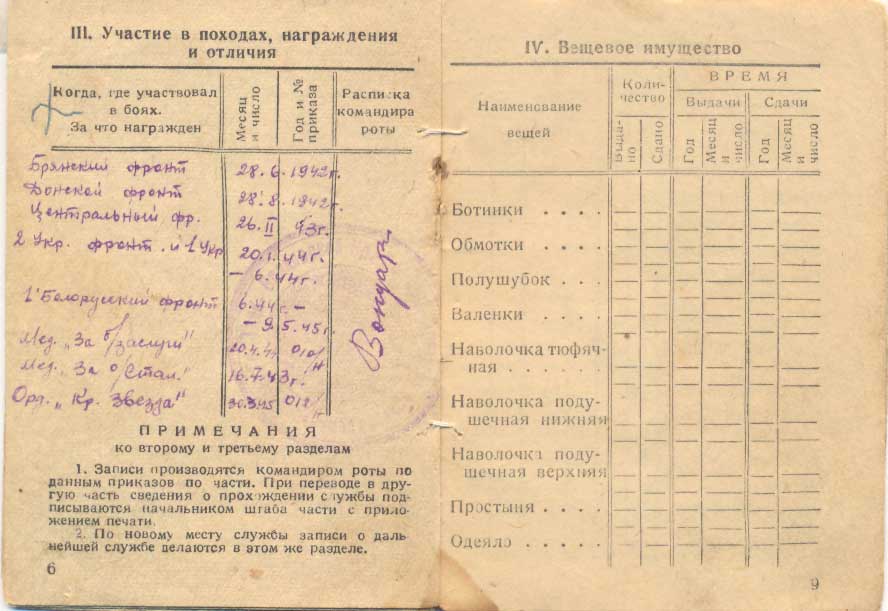 III. Участие в походах, награждения
и отличия
Когда, где участвовал
в боях.
За что награжден
Месяц
и число
Год и №
приказа
Расписка
командира
роты
Брянский фронт 28.6.1942г.
Донской фронт 28.8.1942г.
Центральный фр. 26.II 43г.
2 Укр. фронт. и 1 Укр 20.1.44г.
– 6.44г.
1 Белорусский фронт 6.44г –
– 9.5.45г.
Мед. „За б/заслуги" 20.4.4 010/н
Мед. „За о/Стал." 16.7.43г.
Орд. „Кр. Звезда" 30.3.45 012/н
ПРИМЕЧАНИЯ
ко второму и третьему разделам
1. Записи производятся командиром роты по
данным приказов по части. При переводе в дру-
гую часть сведения о прохождении службы под-
писываются начальником штаба части с прило-
жением печати.
2. По новому месту службы записи о даль-
нейшей службе делаются в этом же разделе.
6
IV. Вещевое имущество
Наименсвание
вещей
Коли-
чество
ВРЕМЯ
Выдачи
Сдачи
Выда-
но
Сдано
Год
Месяц
и
число
Год
Месяц
и
число
Ботинки . . . .
Обмотки . . . .
Полушубок . .
Валенки . . . .
Наволочка тюфяч-
ная . . . . . .
Наволочка поду-
шечная нижняя
Наволочка поду-
шечная верхняя
Простыня . . .
Одеяло . . . . .
9